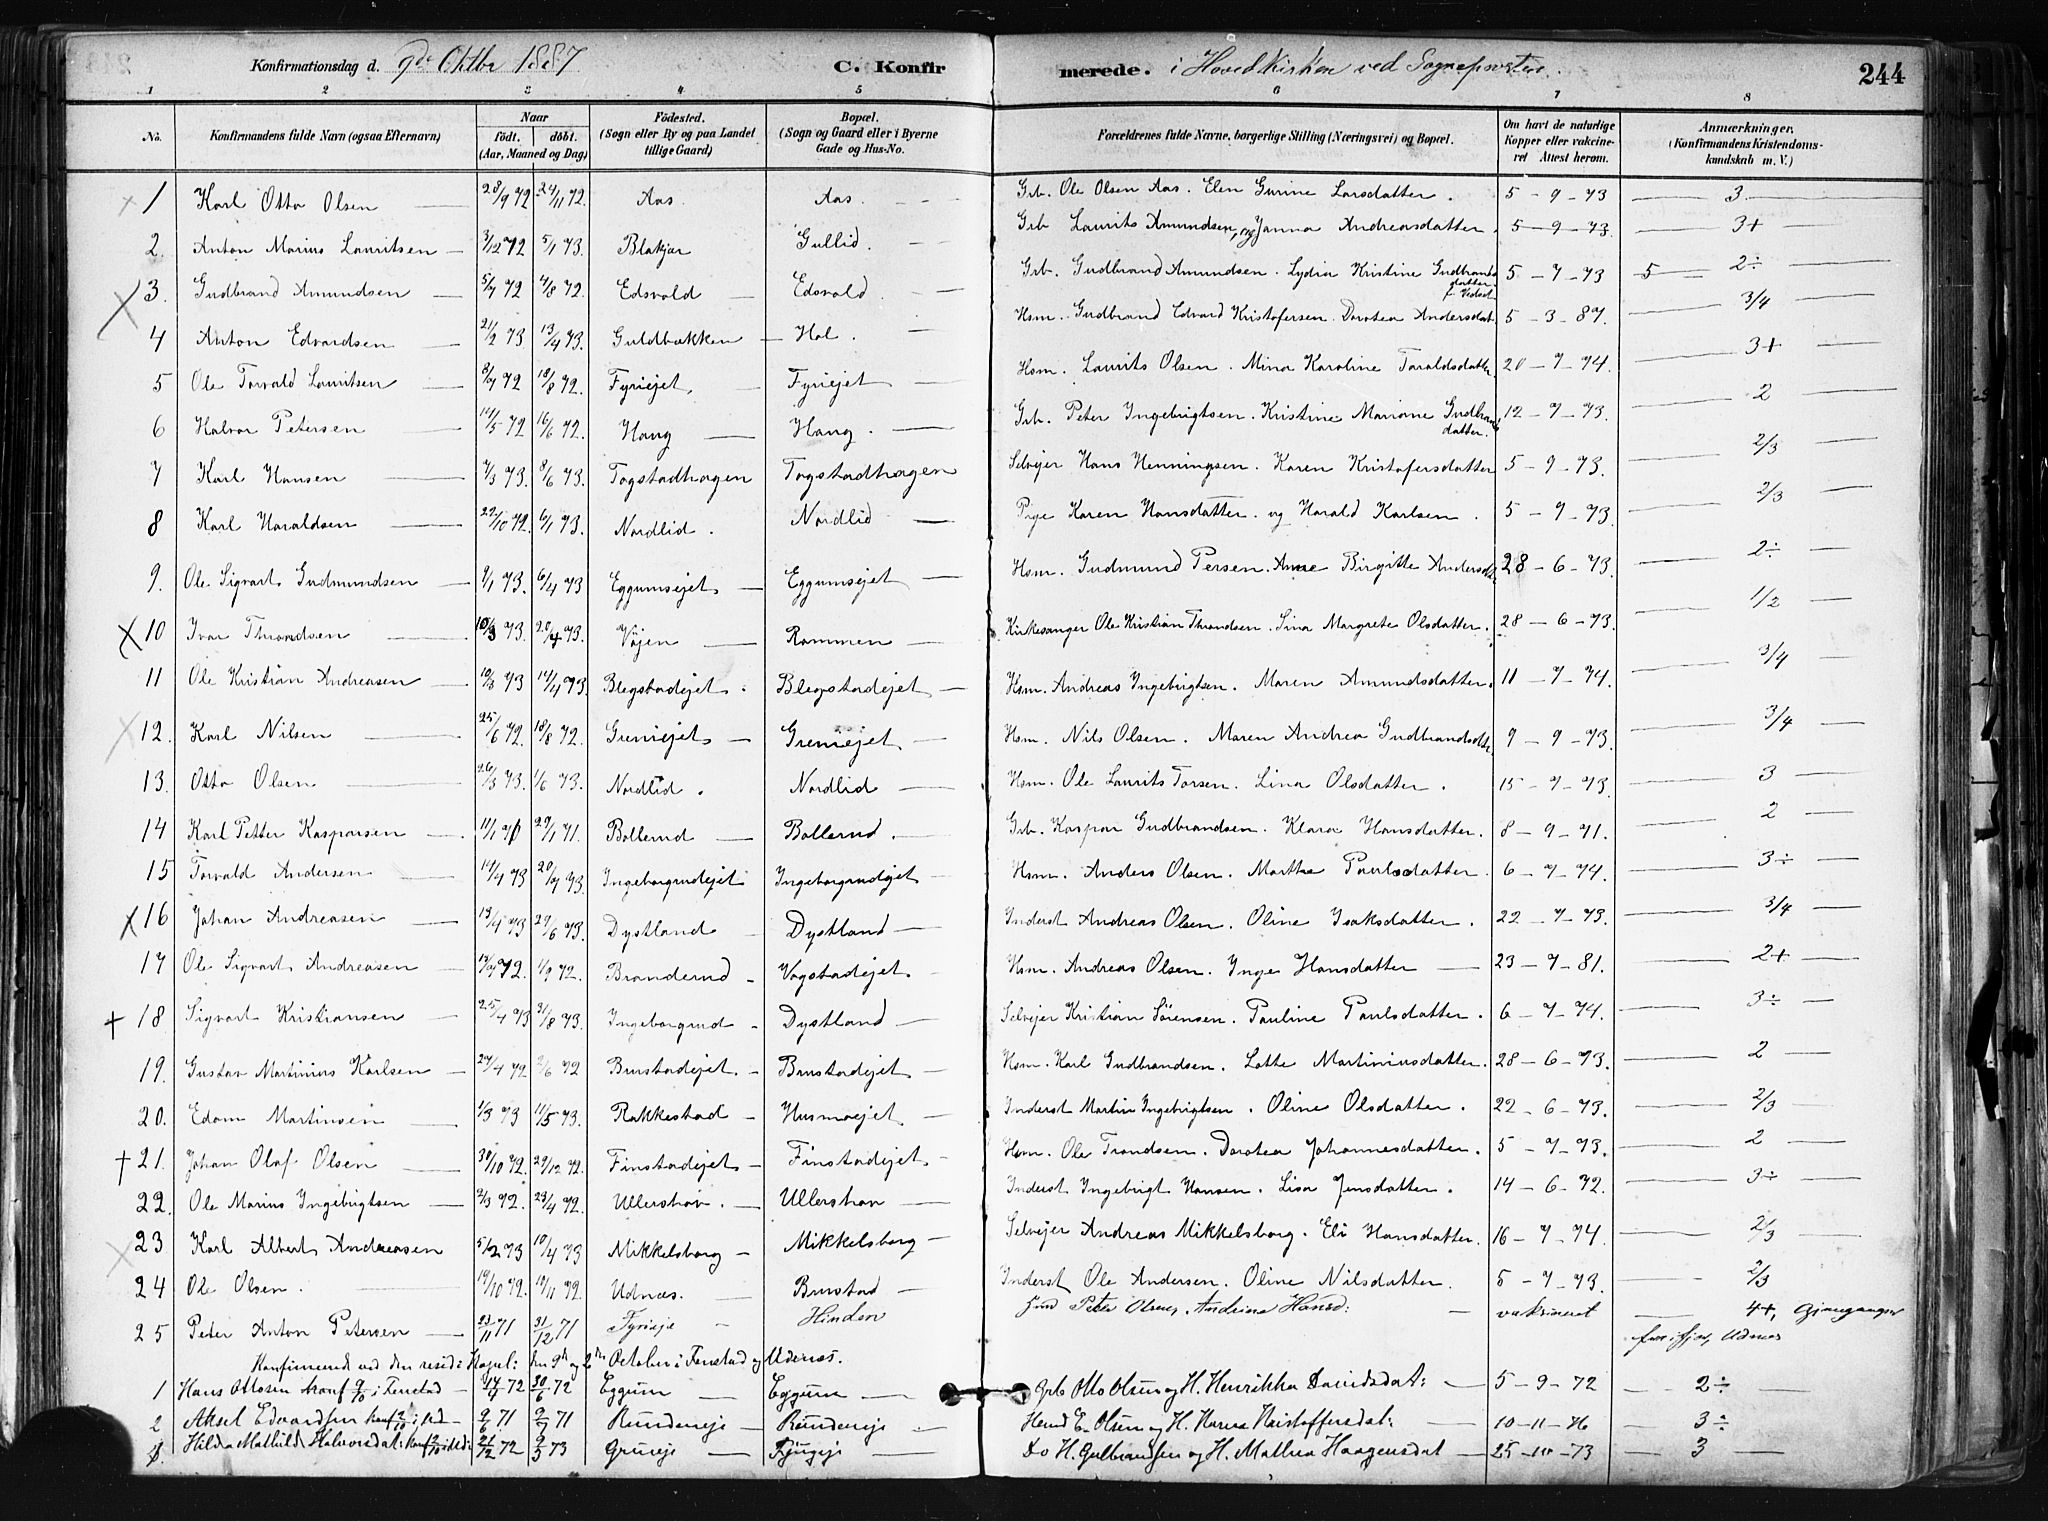 Konfirmationsdag d. 9de Oktbr 1887 C. Konfirmerede. i Hovedkirken ved Sognepresten. 244
1 2 3 4 5 6 7 8
No. Konfirmandens fulde Navn (ogsaa Efternavn) Naar født. døbt. (Aar, Maaned og Dag) Fødested. (Sogn eller By og paa Landet tillige Gaard) Bopæl. (Sogn og Gaard eller i Byerne Gade og Hus-No. Forældrenes fulde Navne, borgerlige Stilling (Næringsvei) og Bopæl. Om havt de naturlige Kopper eller vakcineret Attest herom. Anmærkninger. (Konfirmandens Kristendomskundskab m. V.)
1 Karl Otto Olsen 28/9 72 24/11 72. Aas. Aas. Grb. Ole Olsen Aas. Elen Gurine Larsdatter. 5-9-73 3
2. Anton Marius Lauritsen 3/12 72 5/1 73. Blakjar Gullid. Grb Laurits Amundsen, og Janna Andreasdatter. 5-9-73. 3+
3. Gudbrand Amundsen 5/7 72 4/8 72. Edsvold Edsvold. Grb. Gudbrand Amundsen. Lydia Kristine Gudbrandsdatter 5-7-73 5 2÷
4 Anton Edvardsen 21/2 73 13/4 73. Guldbakken Hol. Hsm. Gudbrand Edvard Kristofersen. Dorotea Andersdat. 5-3-87. 3/4
5 Ole Torvald Lauritsen 8/7 72 18/8 72. Fyriejet Fyriejet Hsm. Laurits Olsen. Mina Karoline Toraldsdatter. 20-7-74. 3+
6 Halvor Petersen 11/5 72 16/6 72. Haug Haug. Grb. Peter Ingebrigtsen. Kristine Mariane Gudbrandsdatter. 12-7-73. 2
7 Karl Hansen 7/3 73. 8/6 73. Togstadhagen Togstadhagen Selvejer Hans Henningsen. Karen Kristofersdatter 5-9-73. 2/3
8 Karl Haraldsen 27/10 72. 6/1 73. Nordlid. Nordlid Pige Karen Hansdatter. og Harald Karlsen. 5-9-73. 2/3
9. Ole Sigvart Gudmundsen 9/1 73. 6/4 73 Eggumsejet Eggumsejet Hsm. Gudmund Persen. Anne Birgitte Andersdt 28-6-73. 2÷
10 Ivar Throndsen 10/3 73. 20/4 73. Vøjen Rammen Kirkesanger Ole Kristian Throndsen. Lina Margrete Olsdatter. 28-6-73. 1/2
11 Ole Kristian Andreasen 10/3 73 14/4 73. Blegstadejet. Blegstadejet Hsm. Andreas Ingebrigtsen. Maren Amundsdatter. 11-7-74. 3/4
12. Karl Nilsen 25/6 72. 18/8 72. Greniejet Greniejet Hsm. Nils Olsen. Maren Andrea Gudbrandsdtt. 9-9-73. 3/4
13. Otto Olsen 26/3 73. 1/6 73. Nordlid. Nordlid Hsm. Ole Laurits Torsen. Lina Olsdatter. 15-7-73. 3
14 Karl Petter Kasparsen 11/1 71 29/1 71. Bollerud Bollerud. Grb. Kaspar Gudbrandsen. Klara Hansdatter. 8-9-71. 2
15 Torvald Andersen 14/4 73 20/7 73. Ingeborgrudejet Ingeborgrudejet Hsm. Anders Olsen. Marthe Paulsdatter. 6-7-74. 3÷
16 Johan Andreasen 13/4 73 29/6 73. Dystland Dystland Inderst Andreas Olsen. Oline Isaksdatter. 22-7-73. 3/4
17 Ole Sigvart Andreasen 1/9 72. Branderud Vogstadejet. Hsm. Andreas Olsen. Inge Hansdatter 23-7-81. 2+
18 Sigvart Kristiansen 25/4 73 31/8 73. Ingeborgrud Dystland Selvejer Kristian Sörensen. Pauline Paulsdatter. 6-7-74. 3÷
19. Gustav Martinius Karlsen 27/4 72 2/6 72 Brustadejet. Brustadejet Hsm. Karl Gudbrandsen. Lotte Martiniusdatter. 28-6-73. 2
20. Edvin Martinsen 1/3 73 11/5 73. Rakkestad Husmoejet Inderst Martin Ingebrigtsen. Oline Olsdatter. 22-6-73. 2/3
21. Johan Olaf Olsen 30/10 72. 29/12 72. Finstadejet Finstadejet Hsm. Ole Trondsen. Dorotea Johannesdatter. 5-7-73. 2
22. Ole Marius Ingebrigtsen 2/3 72. 28/4 72. Ullershov. Ullershov Inderst Ingebrigt Hansen. Lisa Jensdatter. 14-6-72. 3÷
23 Karl Albert Andreasen 5/2 73 10/4 73 Mikkelsborg Mikkelsborg Selvejer Andreas Mikkelsborg. Eli Hansdatter. 16-7-74. 2/3
24 Ole Olsen. 19/10 72. 10/11 72. Udnæs. Brustad Inderst Ole Andersen. Oline Nilsdatter. 5-7-73. 2/3
25 Peter Anton Petersen 23/11 71 31/12 71 Fyrieje Hinden Peter Olsen, Andrina Hansd: vaksineret 4+, Gjenganger
fra ifjor, Udnæs
Konfirmered ved den resid: Kapel: den 9de og 2den October i Fenstad og Udenæs.
1 Hans Ottosen konf 9/10 i Fenstad 14/4 72 30/6 72 Eggum Eggum Grb Otto Olsen og H. Henrikka Davidsdat: 5-9-72 2÷
2 Aksel Edvardsen konf 2/10 9/6 71 9/7 71 Rundereje Rundereje Hsmd E. Olsen og H. Karen Kristoffersdat: 10-11-76 3÷
1. Hilda Mathild. Halvorsdat: konf 2/10 21/12 72 9/3 73 Grueje Do H. Gulbrandsen og H. Mathea Haagensdat 25-10-73 3